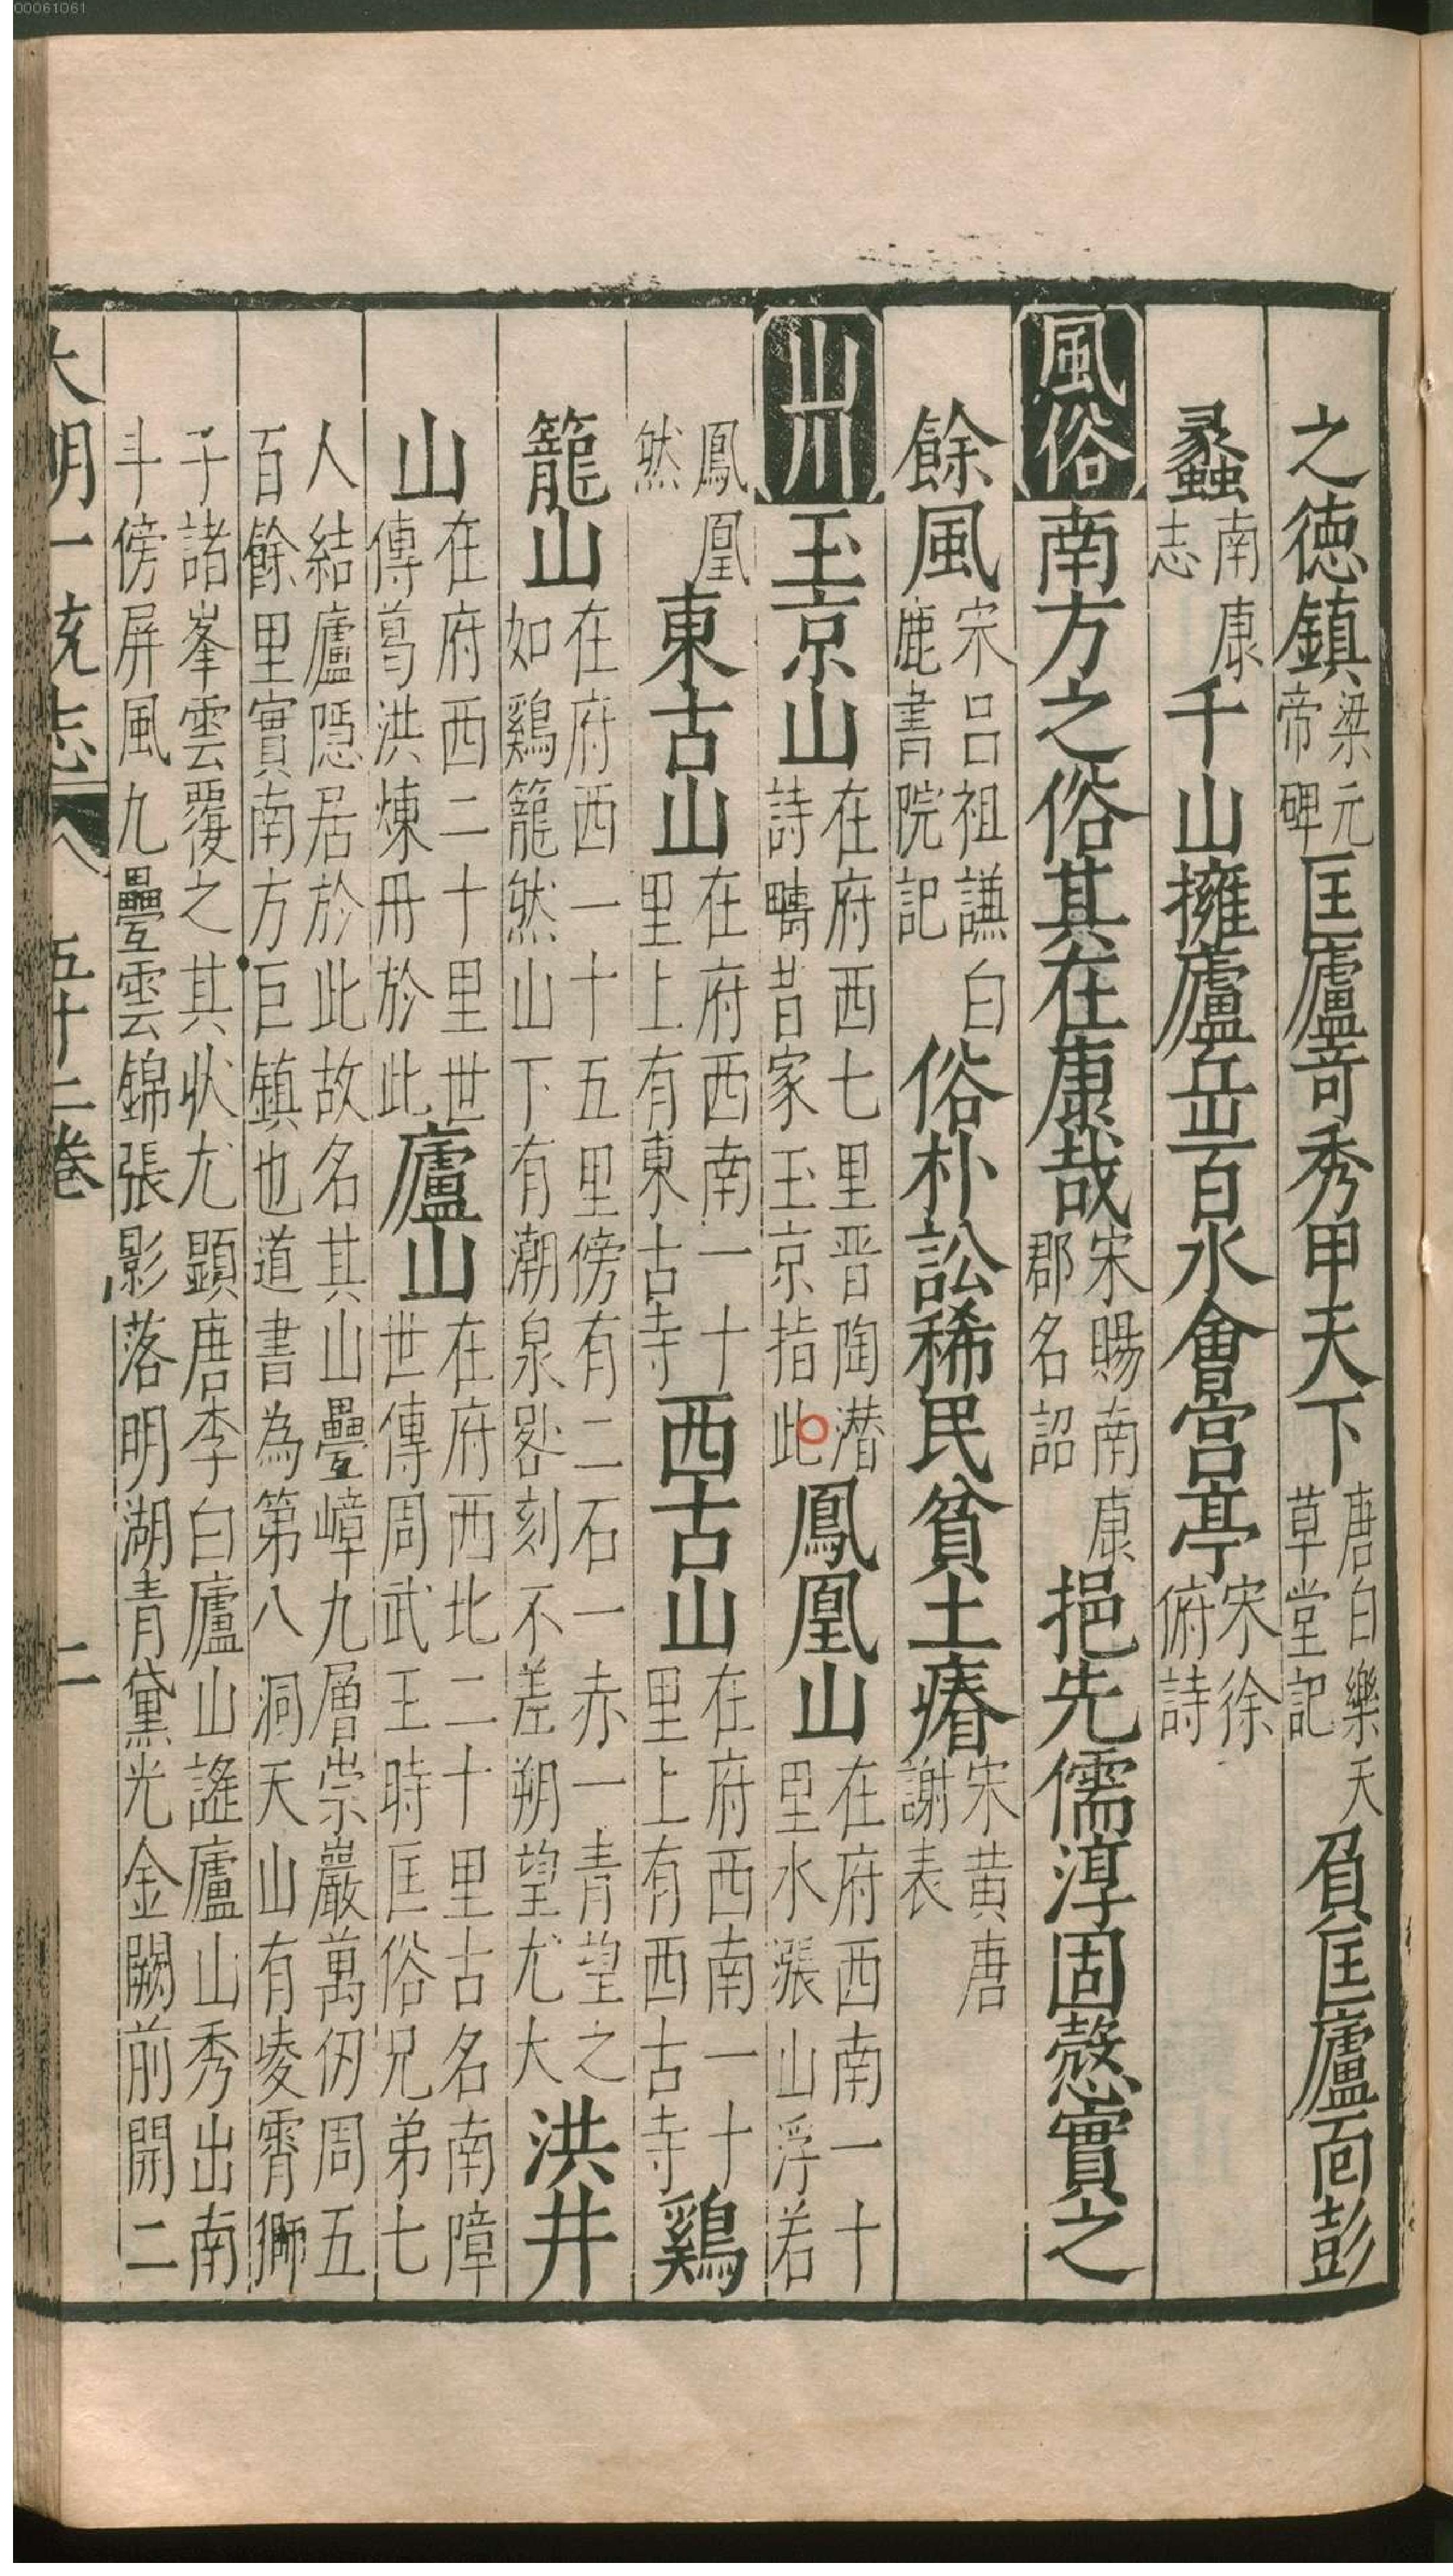 00061061
之德鎮梁元帝碑匡廬奇秀甲天下唐白樂天草堂記負匡廬面彭
蠡南康志千山擁廬岳百水會宫亭宋徐俯詩
風俗南方之俗其在康哉宋賜南康郡名詔挹先儒淳固愨實之
餘風宋呂祖謙白鹿書院記俗朴訟稀民貧土瘠宋黄唐謝表
山川玉京山在府西七里晋陶潜詩疇昔家玉京指此鳳凰山在府西南一十里水漲山浮若
鳳凰然東古山在府西南一十里上有東古寺西古山在府西南一十里上有西古寺鷄
籠山在府西一十五里傍有二石一赤一青望之如鷄籠然山下有潮泉晷刻不差朔望尤大洪井
山在府西二十里世傳葛洪煉丹於此廬山在府西北二十里古名南障世傳周武王時匡俗兄弟七
人結廬隱居於此故名其山疊嶂九層崇巖萬仞周五百餘里實南方巨鎮也道書為第八洞天山有凌霄獅
子諸峯雲覆之其狀尤顯唐李白廬山謠廬山秀出南斗傍屏風九疊雲錦張影落明湖青黛光金闕前開二
大明一統志 五十二卷 二